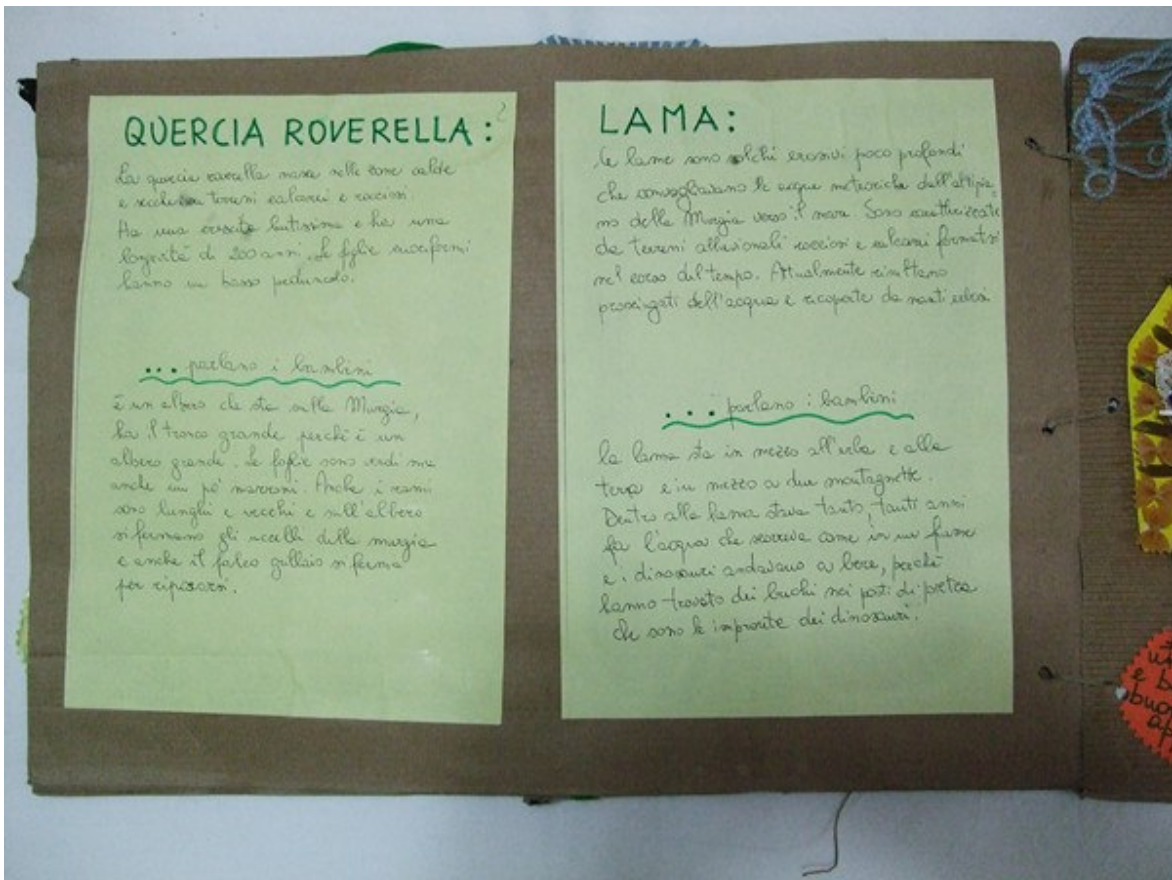 QUERCIA ROVERELLA:
La quercia roverella nasce nelle zone calde
e secche su terreni calcarei e rocciosi.
Ha una crescita lentissima e ha una
longevità di 200 anni. Le foglie
hanno un basso peduncolo.
... parlano i bambini
È un albero che sta sulla Murgia,
ha il tronco grande perchè è un
albero grande. Le foglie sono verdi ma
anche un pò marroni. Anche i rami
sono lunghi e vecchi e sull'albero
si fermano gli uccelli della murgia
e anche il falco grillaio si ferma
per riposarsi.
LAMA:
Le lame sono solchi erosivi poco profondi
che convogliavano le acque meteoriche dall'altipia
no della Murgia verso il mare. Sono caratterizzate
da terreni alluvionali rocciosi e calcarei formatisi
nel corso del tempo. Attualmente risultano
prosciugati dell'acqua e ricoperte da manti erbosi
... parlano i bambini
la lama sta in mezzo all'erba e alla
terra e in mezzo a due montagnette.
Dentro alla lama stava tanto, tanti anni
fa l'acqua che scorreva come in un fiume
e i dinosauri andavano a bere, perchè
hanno trovato dei buchi nei posti di pietra
che sono le impronte dei dinosauri.
e b
buc
ap